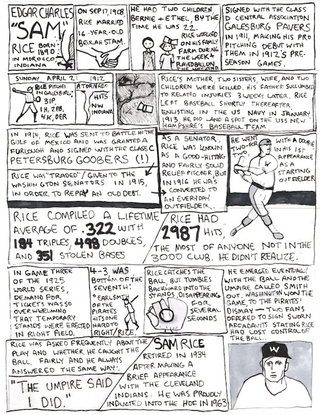 EDGAR CHARLES
"SAM"
RICE BORN
1890
IN MOROCCO
INDIANA
ON SEPT 17, 1908
RICE MARRIED
16-YEAR-OLD
BEULAH STAM.
HE HAD TWO CHILDREN,
BERNIE + ETHEL, BY THE
TIME HE WAS 22.
RICE WORKED
ON HIS FAMILY
FARM DURING
THE WEEK &
SIGNED WITH THE CLASS
D CENTRAL ASSOCIATION
GALESBURG PAVERS
IN 1911, MAKING HIS PRO
PITCHING DEBUT WITH
THEM IN 1912'S PRE-
SEASON GAMES.
SUNDAY APRIL 21 1912
RICE PITCHES
IN GALESBURG,
3IP
1H, 2BB,
4K, 0ER
A TORNADO
HITS
NW
INDIANA
RICE'S MOTHER, TWO SISTERS, WIFE, AND TWO
CHILDREN WERE KILLED, HIS FATHER SUCCUMBED
TO RELATED INJURIES 3 WEEKS LATER, RICE
LEFT BASEBALL SHORTLY THEREAFTER,
ENLISTING IN THE US NAVY IN JANUARY
1913. HE DID LAND A SPOT ON THE USS NEW
HAMPSHIRE'S BASEBALL TEAM.
IN 1914, RICE WAS SENT TO BATTLE IN THE
GULF OF MEXICO AND WAS GRANTED A
FURLOUGH AND SIGNED WITH THE CLASS C
PETERSBURG GOOBERS (!)
RICE WAS "TRADED" / GIVEN TO THE
WASHINGTON SENATORS IN 1915,
IN ORDER TO REPAY AN OLD DEBT.
AS A SENATOR,
RICE WAS KNOWN
AS A GOOD-HITTING
AND FAIRLY SOLID
RELIEF PITCHER. BUT
IN 1916 HE WAS
CONVERTED TO
AN EVERYDAY
OUTFIELDER.
HE WENT
TWO-FOR-
WITH A DOUBLE
IN HIS 1ST
APPEARANCE
AS A
STARTING
OUTFIELDER
RICE COMPILED A LIFETIME
AVERAGE OF .322 WITH
184 TRIPLES, 498 DOUBLES,
AND 351 STOLEN BASES
RICE HAD
2987 HITS,
THE MOST OF ANYONE NOT IN THE
3000 CLUB. HE DIDN'T REALIZE.
IN GAME THREE
OF THE 1925
WORLD SERIES,
DEMAND FOR
TICKETS WAS SO
OVERWHELMING
THAT TEMPORARY
STANDS WERE ERECTED
IN RIGHT FIELD.
4-3 WAS
BOTTOM OF THE
SEVENTH!
EARL SMITH
OF THE
PIRATES
HITS ONE
HARD TO
RIGHT/
RICE CATCHES THE
BALL, BUT TUMBLES
BACKWARD INTO THE
STANDS, DISAPPEARING
FOR
SEVERAL
SECONDS.
HE EMERGES EVENTUALLY
WITH THE BALL AND THE
UMPIRE CALLED SMITH
OUT. WASHINGTON WON THE
GAME, TO THE PIRATES'
DISMAY — TWO FANS
OFFERED TO SIGN SWORN
STATING RICE
HAD LOST CONTROL OF
THE BALL.
RICE WAS ASKED FREQUENTLY ABOUT THE
PLAY AND WHETHER HE CAUGHT THE
BALL FAIRLY AND HE ALWAYS
ANSWERED THE SAME WAY.
"THE UMPIRE SAID
I DID."
SAM RICE
RETIRED IN 1934
AFTER MAKING A
BRIEF APPEARANCE
WITH THE CLEVELAND
INDIANS. HE WAS PROUDLY
INDUCTED INTO THE HOF IN 1963!
W